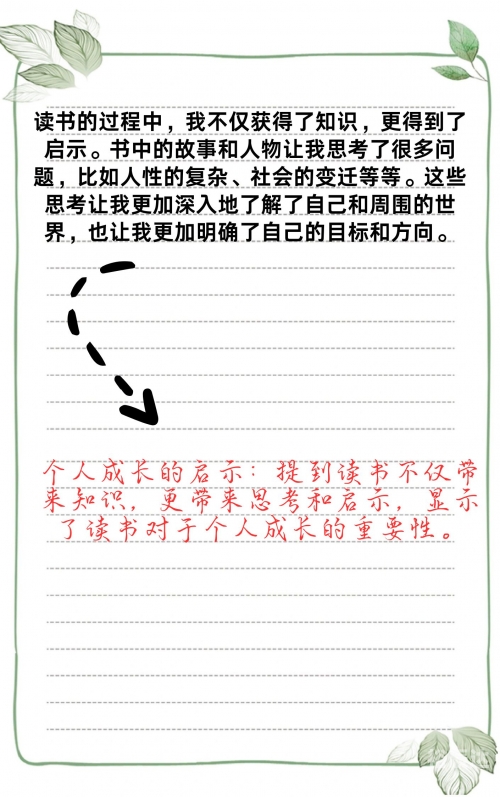 读书的过程中，我不仅获得了知识，更得到了
启示。书中的故事和人物让我思考了很多问
题，比如人性的复杂、社会的变迁等等。这些
思考让我更加深入地了解了自己和周围的世
界，也让我更加明确了自己的目标和方向。
个人成长的启示：提到读书不仅带
来知识，更带来思考和启示，显示
了读书对于个人成长的重要性。